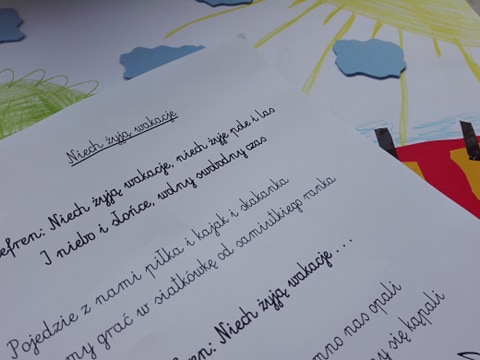 Niech żyją wakacje
efren: Niech żyją wakacje, niech żyje pole i las
I niebo i słońce, wolny swobodny czas
Pojedzie z nami piłka i kajak i skakanka
my grać w siatkówkę od samiutkiego ranka
n: Niech żyją wakacje...
nno nas opali
y się kąpali